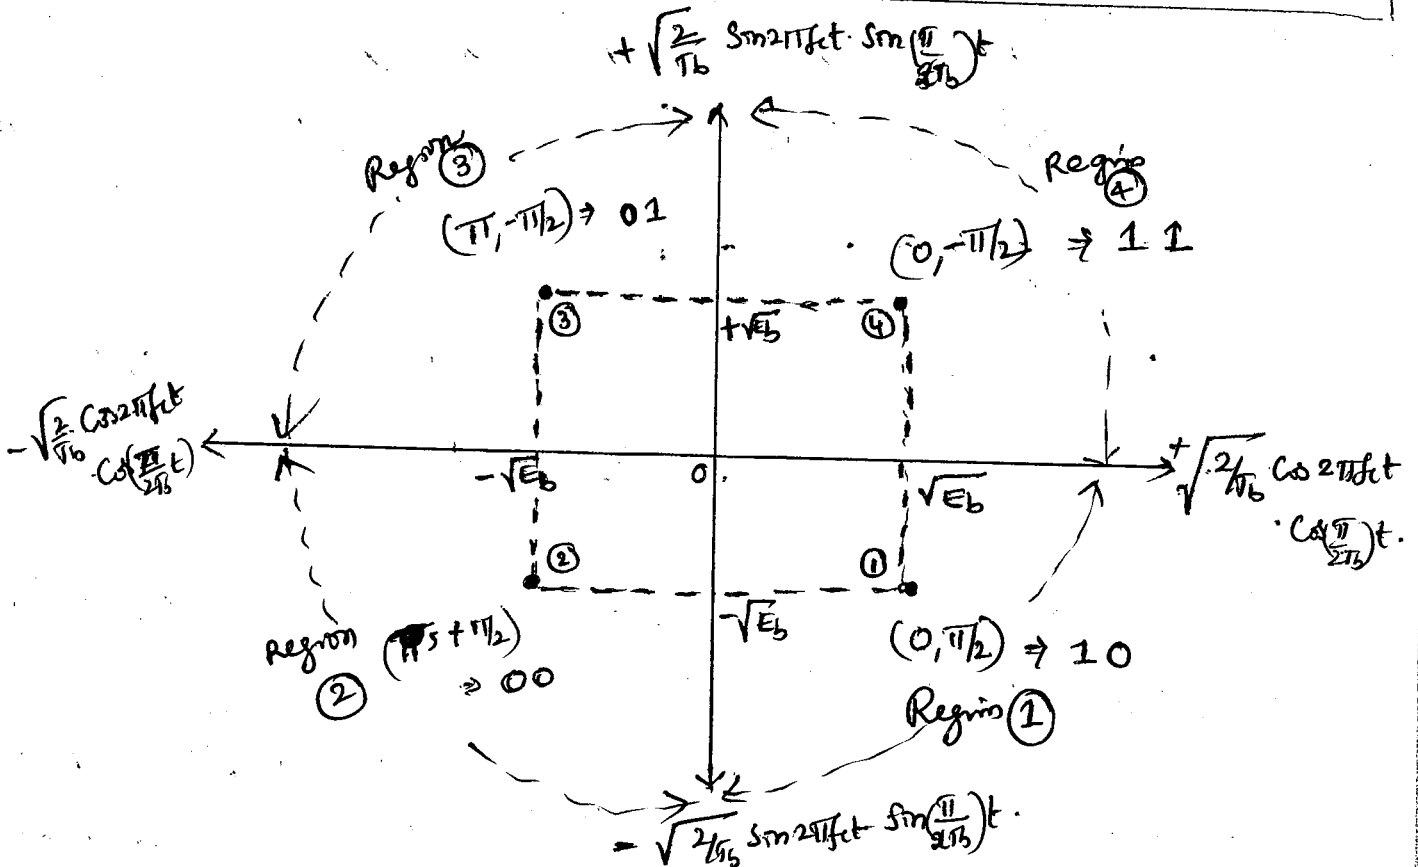 + √(2/Tb) Sin2πfct. Sin(π/2Tb)t
Region ③
Region ④
(π, -π/2) ⇒ 01
(0, -π/2) ⇒ 1 1
③
+√Eb
④
-√(2/Tb) Cos2πfct
. Cos(π/2Tb t)
-√Eb
0
√Eb
+√(2/Tb) Cos 2πfct
. Cos(π/2Tb)t.
②
①
-√Eb
Region ②
(π, +π/2)
⇒ 00
(0, π/2) ⇒ 10
Region ①
- √(2/Tb) Sin2πfct Sin(π/2Tb)t.